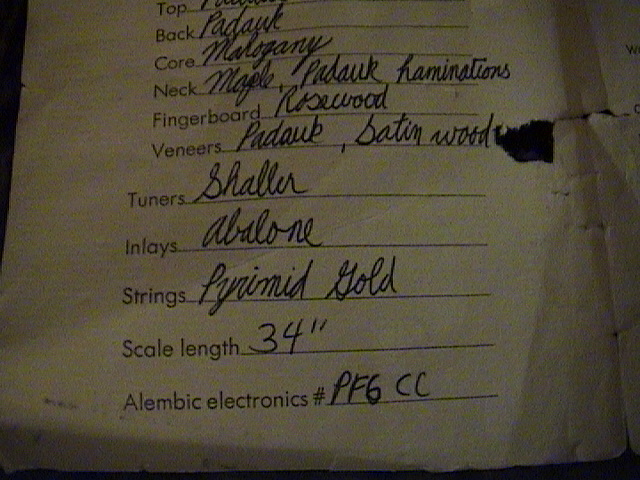 Top Padauk
Back Padauk
Core Mahogany
Neck Maple, Padauk Laminations
Fingerboard Rosewood
Veneers Padauk, Satin wood
Tuners Shaller
Inlays Abalone
Strings Pyrimid Gold
Scale length 34"
Alembic electronics # PF6 CC